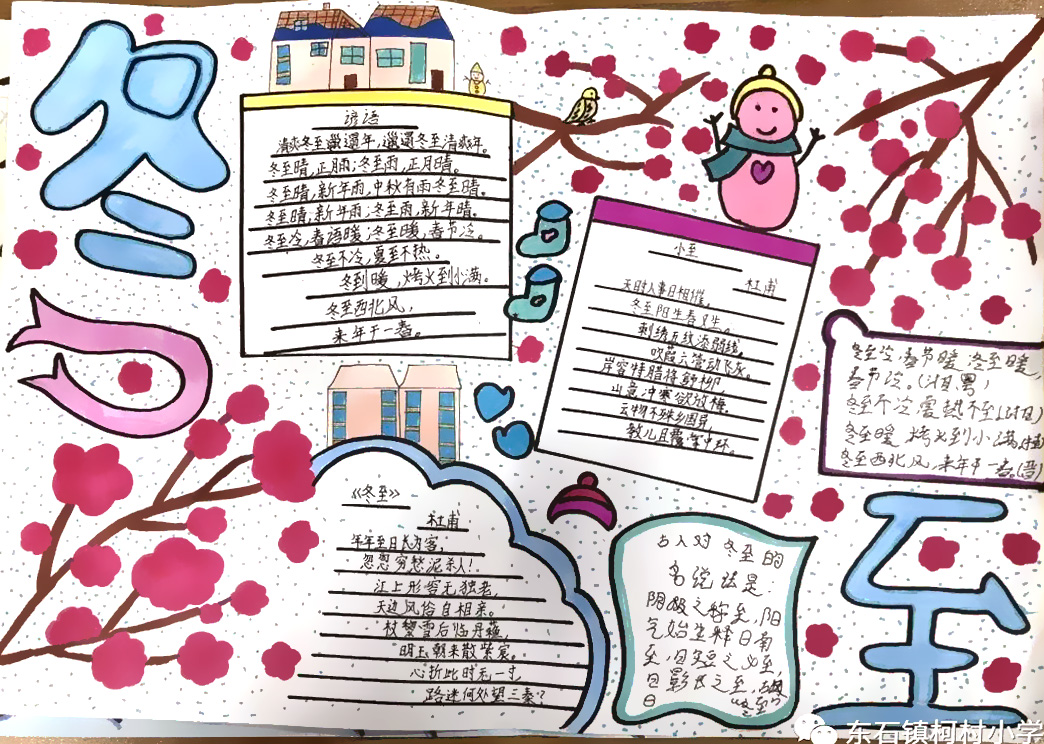 冬
谚语
清爽冬至邋遢年,邋遢冬至清爽年
冬至晴,正月雨;冬至雨,正月晴。
冬至晴,新年雨,中秋有雨冬至晴。
冬至晴,新年雨;冬至雨,新年晴。
冬至冷,春语暖;冬至暖,春节冷。
冬至不冷,夏至不热。
冬到暖,烤火到小满。
冬至西北风,
来年干一春。
小至
杜甫
天时人事日相催,
冬至阳生春又生。
刺绣五纹添弱线,
吹葭六管动飞灰。
岸容特腊将舒柳
山意冲寒欲放梅.
云物不殊乡国异,
教儿且覆掌中杯。
冬至冷,春节暖,冬至暖,
春节冷。
冬至不冷,夏热不至
冬至暖,烤火到小满
冬至西北风,来年干一春。(晋)
《冬至》
杜甫
年年至日长为客,
忽忽穷愁泥杀人!
江上形容无独老,
天边风俗自相亲。
杖藜雪后临丹壑,
明玉朝来散紫宸。
心折此时无一寸,
路迷何处望三秦?
古人对冬至的
名说法是
阴极之称至,阳
气始生释日南
至,日短之至,
日影长之至,
日“冬至”
至
东石镇柯村小学